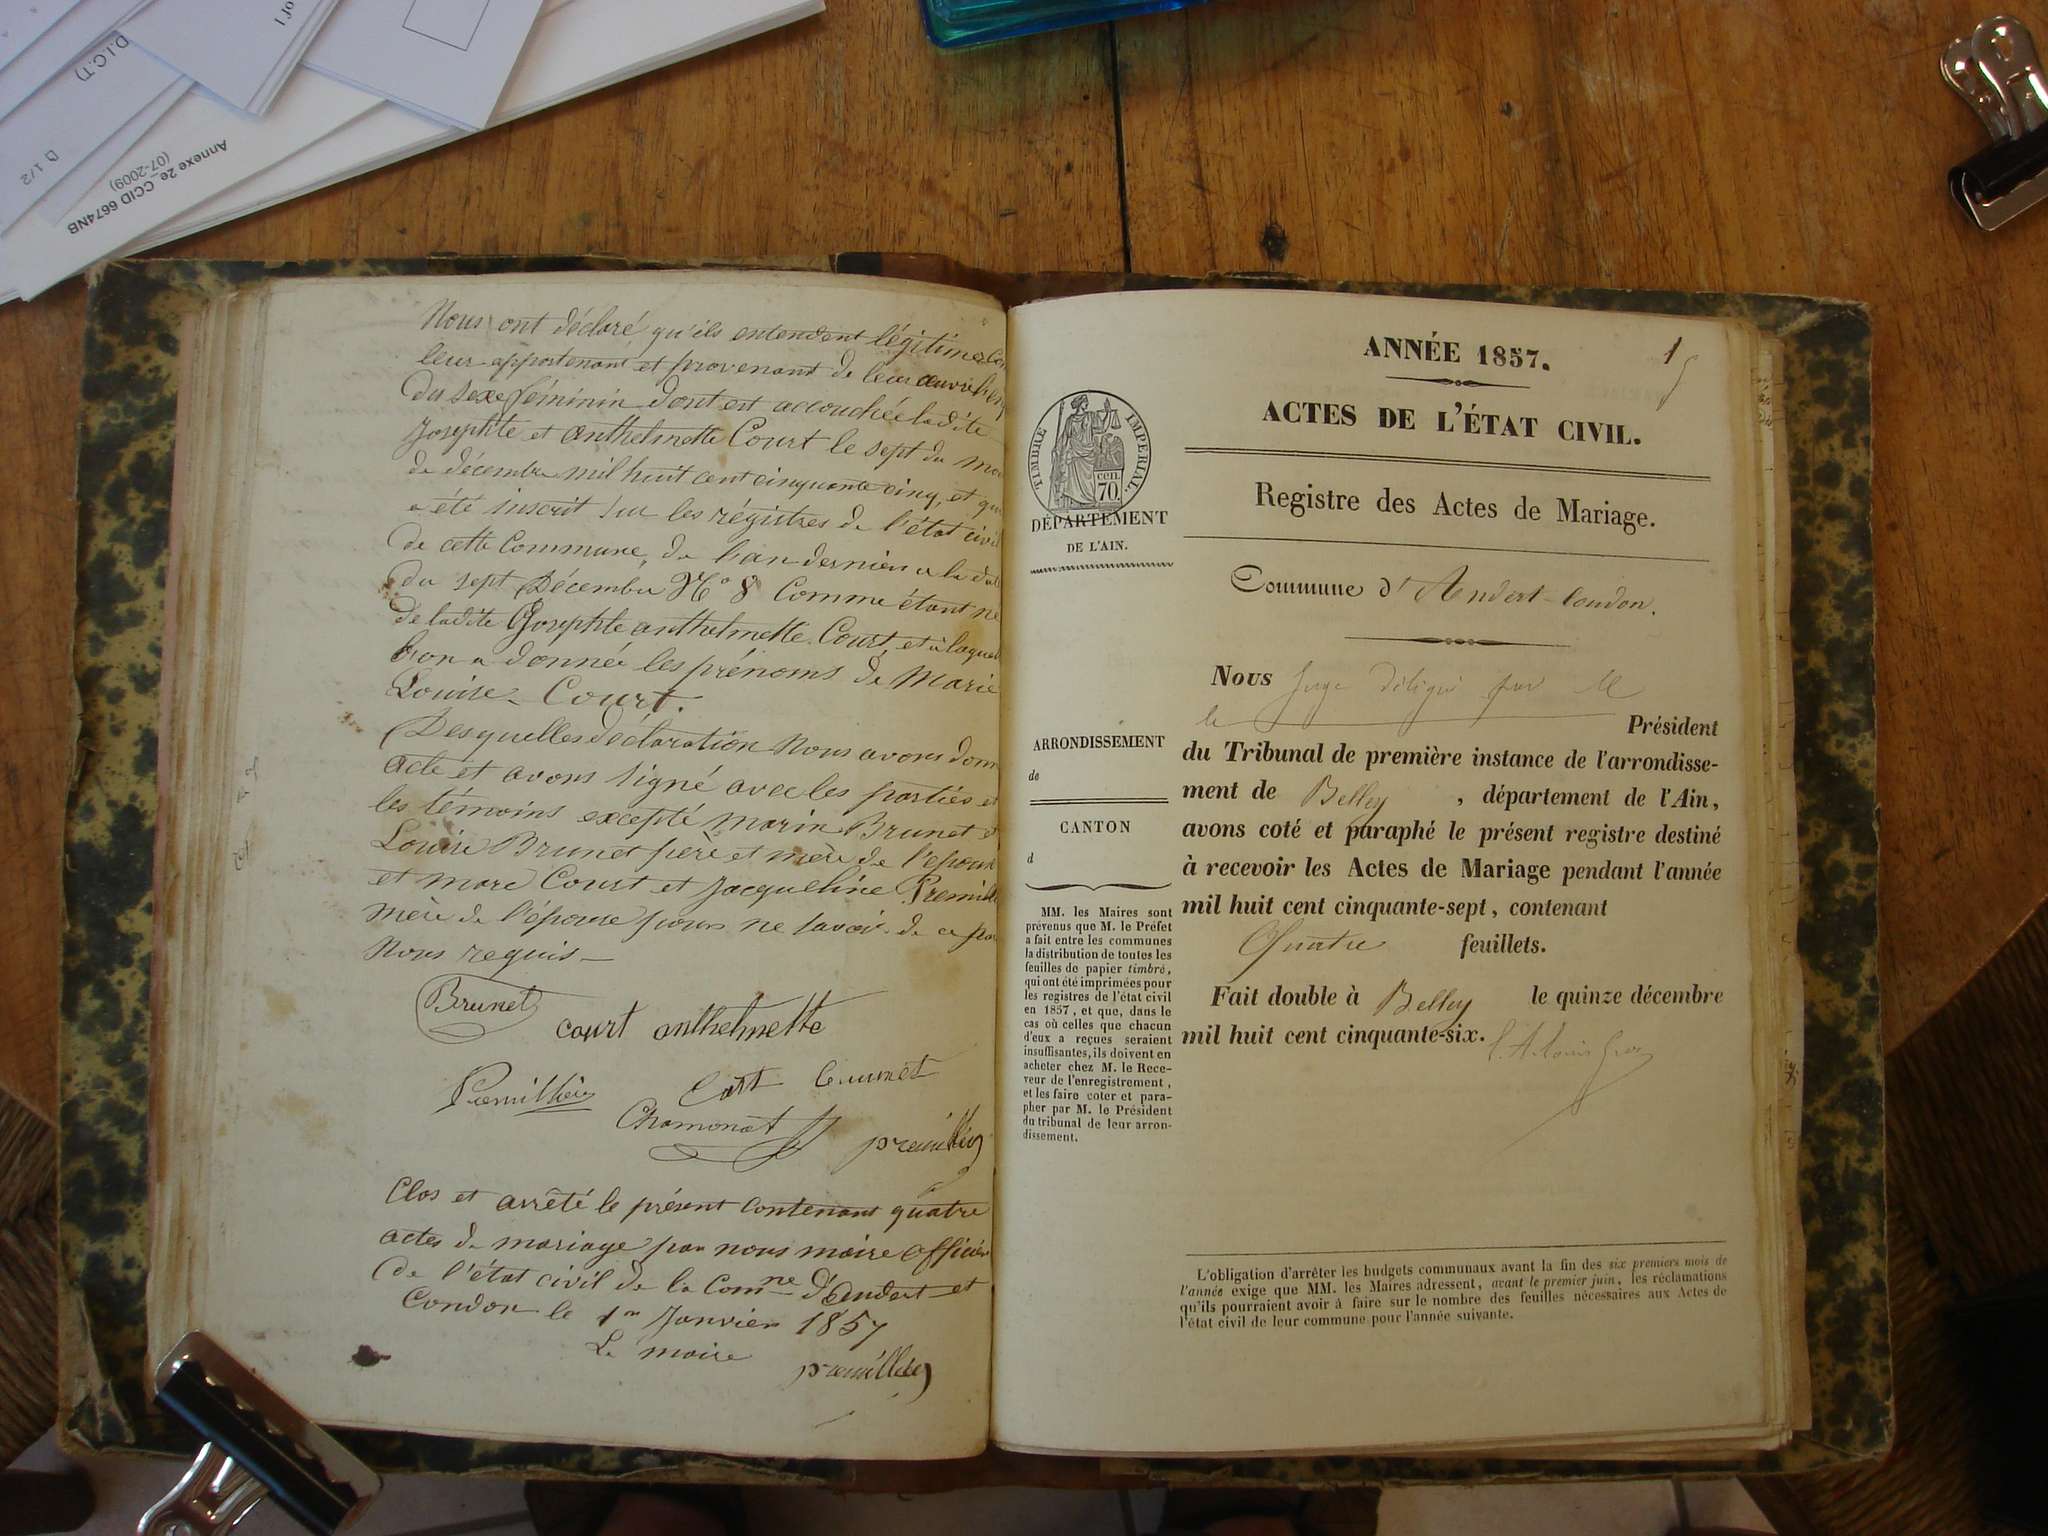 of 1
D.I.C.T)
1/2
Annexe 2e_CCID 6674NB
(07-2009)
Nous ont déclaré, qu'ils entendent légitimer
leur appartenant et provenant de leur œuvre
du sexe féminin dont est accouchée ladite
Josephte et anthelmette Court le sept du
de décembre mil huit cent cinquante cinq, et
a été inscrit sur les régistres de l'état civil
de cette Commune, de l'an dernier a la
du sept Décembre No 8 Comme étant né
de ladite Josephte anthelmette Court, et à laquel
l'on a donnée les prénoms de Marie
Louise Court.
Desquelles déclaration Nous avons donn
acte et avons signé avec les parties et
les témoins excepté Marin Brunet et
Louise Brunet père et mère de l'époux
et marc Court et Jacqueline Premill
mère de l'épouse pour ne savoir de ce
Nous requis —
Brunet
court anthelmette
Premillieu
Brunet
Chamonat
premillieu
Clos et arrêté le présent contenant quatre
actes de mariage par nous maire officier
de l'état civil de la Comne d'andert et
Condon le 1er Janvier 1857
Le maire
premillieu
1
ANNÉE 1857.
ACTES DE L'ÉTAT CIVIL.
Registre des Actes de Mariage.
Commune d'Andert-Condon.
TIMBRE IMPERIAL.
cen.
70.
DÉPARTEMENT
DE L'AIN.
ARRONDISSEMENT
de
CANTON
d
MM. les Maires sont
prévenus que M. le Préfet
a fait entre les communes
la distribution de toutes les
feuilles de papier timbré,
qui ont été imprimées pour
les registres de l'état civil
en 1857, et que, dans le
cas où celles que chacun
d'eux a reçues seraient
insuffisantes, ils doivent en
acheter chez M. le Rece-
veur de l'enregistrement,
et les faire coter et para-
pher par M. le Président
du tribunal de leur arron-
dissement.
Nous Juge délégué par M
le Président
du Tribunal de première instance de l'arrondisse-
ment de Belley, département de l'Ain,
avons coté et paraphé le présent registre destiné
à recevoir les Actes de Mariage pendant l'année
mil huit cent cinquante-sept, contenant
Quatre feuillets.
Fait double à Belley le quinze décembre
mil huit cent cinquante-six.
L'obligation d'arrêter les budgets communaux avant la fin des six premiers mois de
l'année exige que MM. les Maires adressent, avant le premier juin, les réclamations
qu'ils pourraient avoir à faire sur le nombre des feuilles nécessaires aux Actes de
l'état civil de leur commune pour l'année suivante.